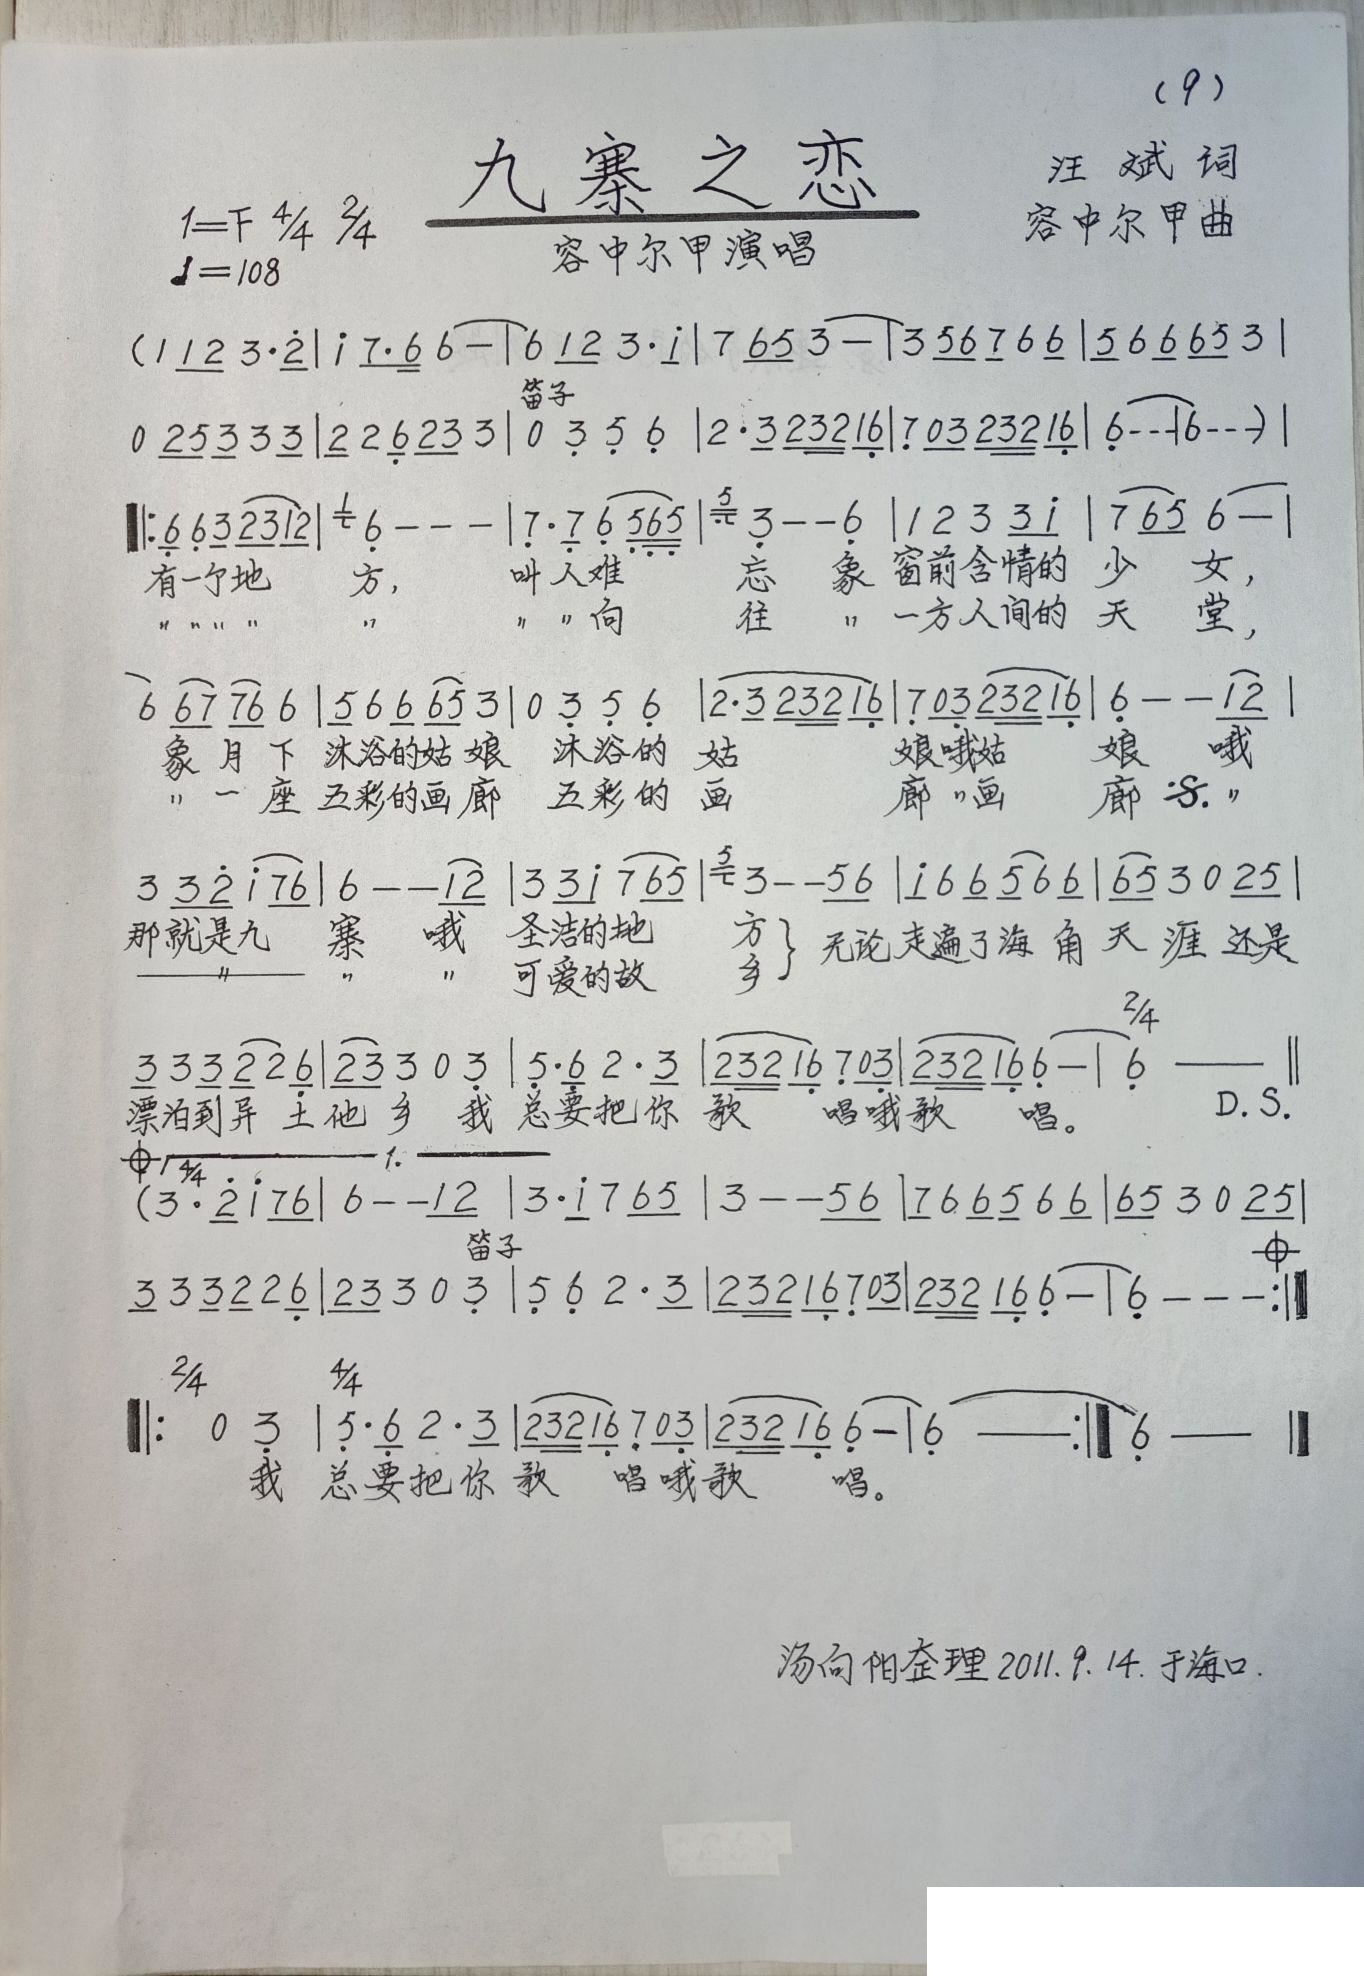 (9)
九寨之恋
汪斌词
1=F 4/4 2/4
容中尔甲曲
容中尔甲演唱
♩=108
(1 1 2 3·2̇|i 7·6 6 —|6 1 2 3·i|7 6 5 3 —|3 5 6 7 6 6|5 6 6 6 5 3|
笛子
0 2 5 3 3 3|2 2 6̣ 2 3 3|0 3̣ 5̣ 6̣|2·3 2 3 2 1 6̣|7̣ 0 3 2 3 2 1 6̣|6̣ - - -|6 - - -)|
‖:6̣ 6̣ 3 2 3 1 2|1 6̣ - - -|7̣·7̣ 6̣ 5̣ 6̣ 5̣|5̣ 3̣ - - 6̣|1 2 3 3 i|7 6 5 6 —|
有一个地 方, 叫人难 忘 象 窗前含情的 少 女,
〃 〃 〃 〃 〃 〃 〃 向 往 〃 一方人间的 天 堂,
6 6 7 7 6 6|5 6 6 6 5 3|0 3̣ 5̣ 6̣|2·3 2 3 2 1 6̣|7̣ 0 3̣ 2 3 2 1 6̣|6̣ - - 1 2|
象 月 下 沐浴的姑 娘 沐浴的 姑 娘哦姑 娘 哦
〃 一 座 五彩的画 廊 五彩的 画 廊 〃画 廊 𝄋 〃
3 3 2̇ i 7 6|6 - - 1 2|3 3 i 7 6 5|5 3 - - 5 6|i 6 6 5 6 6|6 5 3 0 2 5|
那就是九 寨 哦 圣洁的地 方} 无论走遍了海 角 天 涯 还是
〃 〃 〃 可爱的故 乡}
2/4
3 3 3 2 2 6̣|2 3 3 0 3̣|5̣·6̣ 2·3|2 3 2 1 6̣ 7̣ 0 3̣|2 3 2 1 6̣ 6̣ —|6̣ —‖
漂泊到异 土他 乡 我 总要把你 歌 唱哦歌 唱。 D.S.
𝄌 4/4 1.
(3·2̇ i 7 6|6 - - 1 2|3·i 7 6 5|3 - - 5 6|7 6 6 5 6 6|6 5 3 0 2 5|
笛子 𝄌
3 3 3 2 2 6̣|2 3 3 0 3̣|5̣ 6̣ 2·3|2 3 2 1 6̣ 7̣ 0 3|2 3 2 1 6̣ 6̣ —|6̣ - - -:‖
2/4 4/4
‖: 0 3̣|5̣·6̣ 2·3|2 3 2 1 6̣ 7̣ 0 3̣|2 3 2 1 6̣ 6̣ —|6̣ —:‖6̣ —‖
我 总要把你 歌 唱哦歌 唱。
汤向阳整理 2011.9.14.于海口.